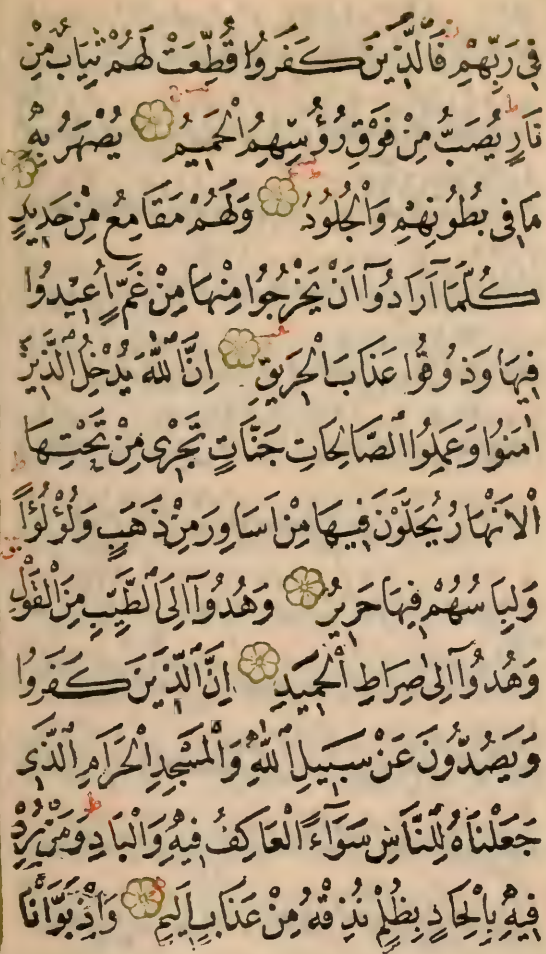 فِى رَبِّهِمْ فَالَّذِينَ كَفَرُوا قُطِّعَتْ لَهُمْ ثِيَابٌ مِنْ
نَارٍ يُصَبُّ مِنْ فَوْقِ رُؤُسِهِمُ الْحَمِيمُ يُصْهَرُ بِهِ
مَا فِى بُطُونِهِمْ وَالْجُلُودُ وَلَهُمْ مَقَامِعُ مِنْ حَدِيدٍ
كُلَّمَا أَرَادُوآ اَنْ يَخْرُجُوا مِنْهَا مِنْ غَمٍّ اُعِيدُوا
فِيهَا وَذُوقُوا عَذَابَ الْحَرِيقِ اِنَّ اللّٰهَ يُدْخِلُ الَّذِينَ
اٰمَنُوا وَعَمِلُوا الصَّالِحَاتِ جَنَّاتٍ تَجْرِى مِنْ تَحْتِهَا
الْاَنْهَارُ يُحَلَّوْنَ فِيهَا مِنْ اَسَاوِرَ مِنْ ذَهَبٍ وَلُؤْلُؤًا
وَلِبَاسُهُمْ فِيهَا حَرِيرٌ وَهُدُوآ اِلَى الطَّيِّبِ مِنَ الْقَوْلِ
وَهُدُوآ اِلٰى صِرَاطِ الْحَمِيدِ اِنَّ الَّذِينَ كَفَرُوا
وَيَصُدُّونَ عَنْ سَبِيلِ اللّٰهِ وَالْمَسْجِدِ الْحَرَامِ الَّذِى
جَعَلْنَاهُ لِلنَّاسِ سَوَآءً الْعَاكِفُ فِيهِ وَالْبَادِ وَمَنْ يُرِدْ
فِيهِ بِاِلْحَادٍ بِظُلْمٍ نُذِقْهُ مِنْ عَذَابٍ اَلِيمٍ وَاِذْ بَوَّاْنَا